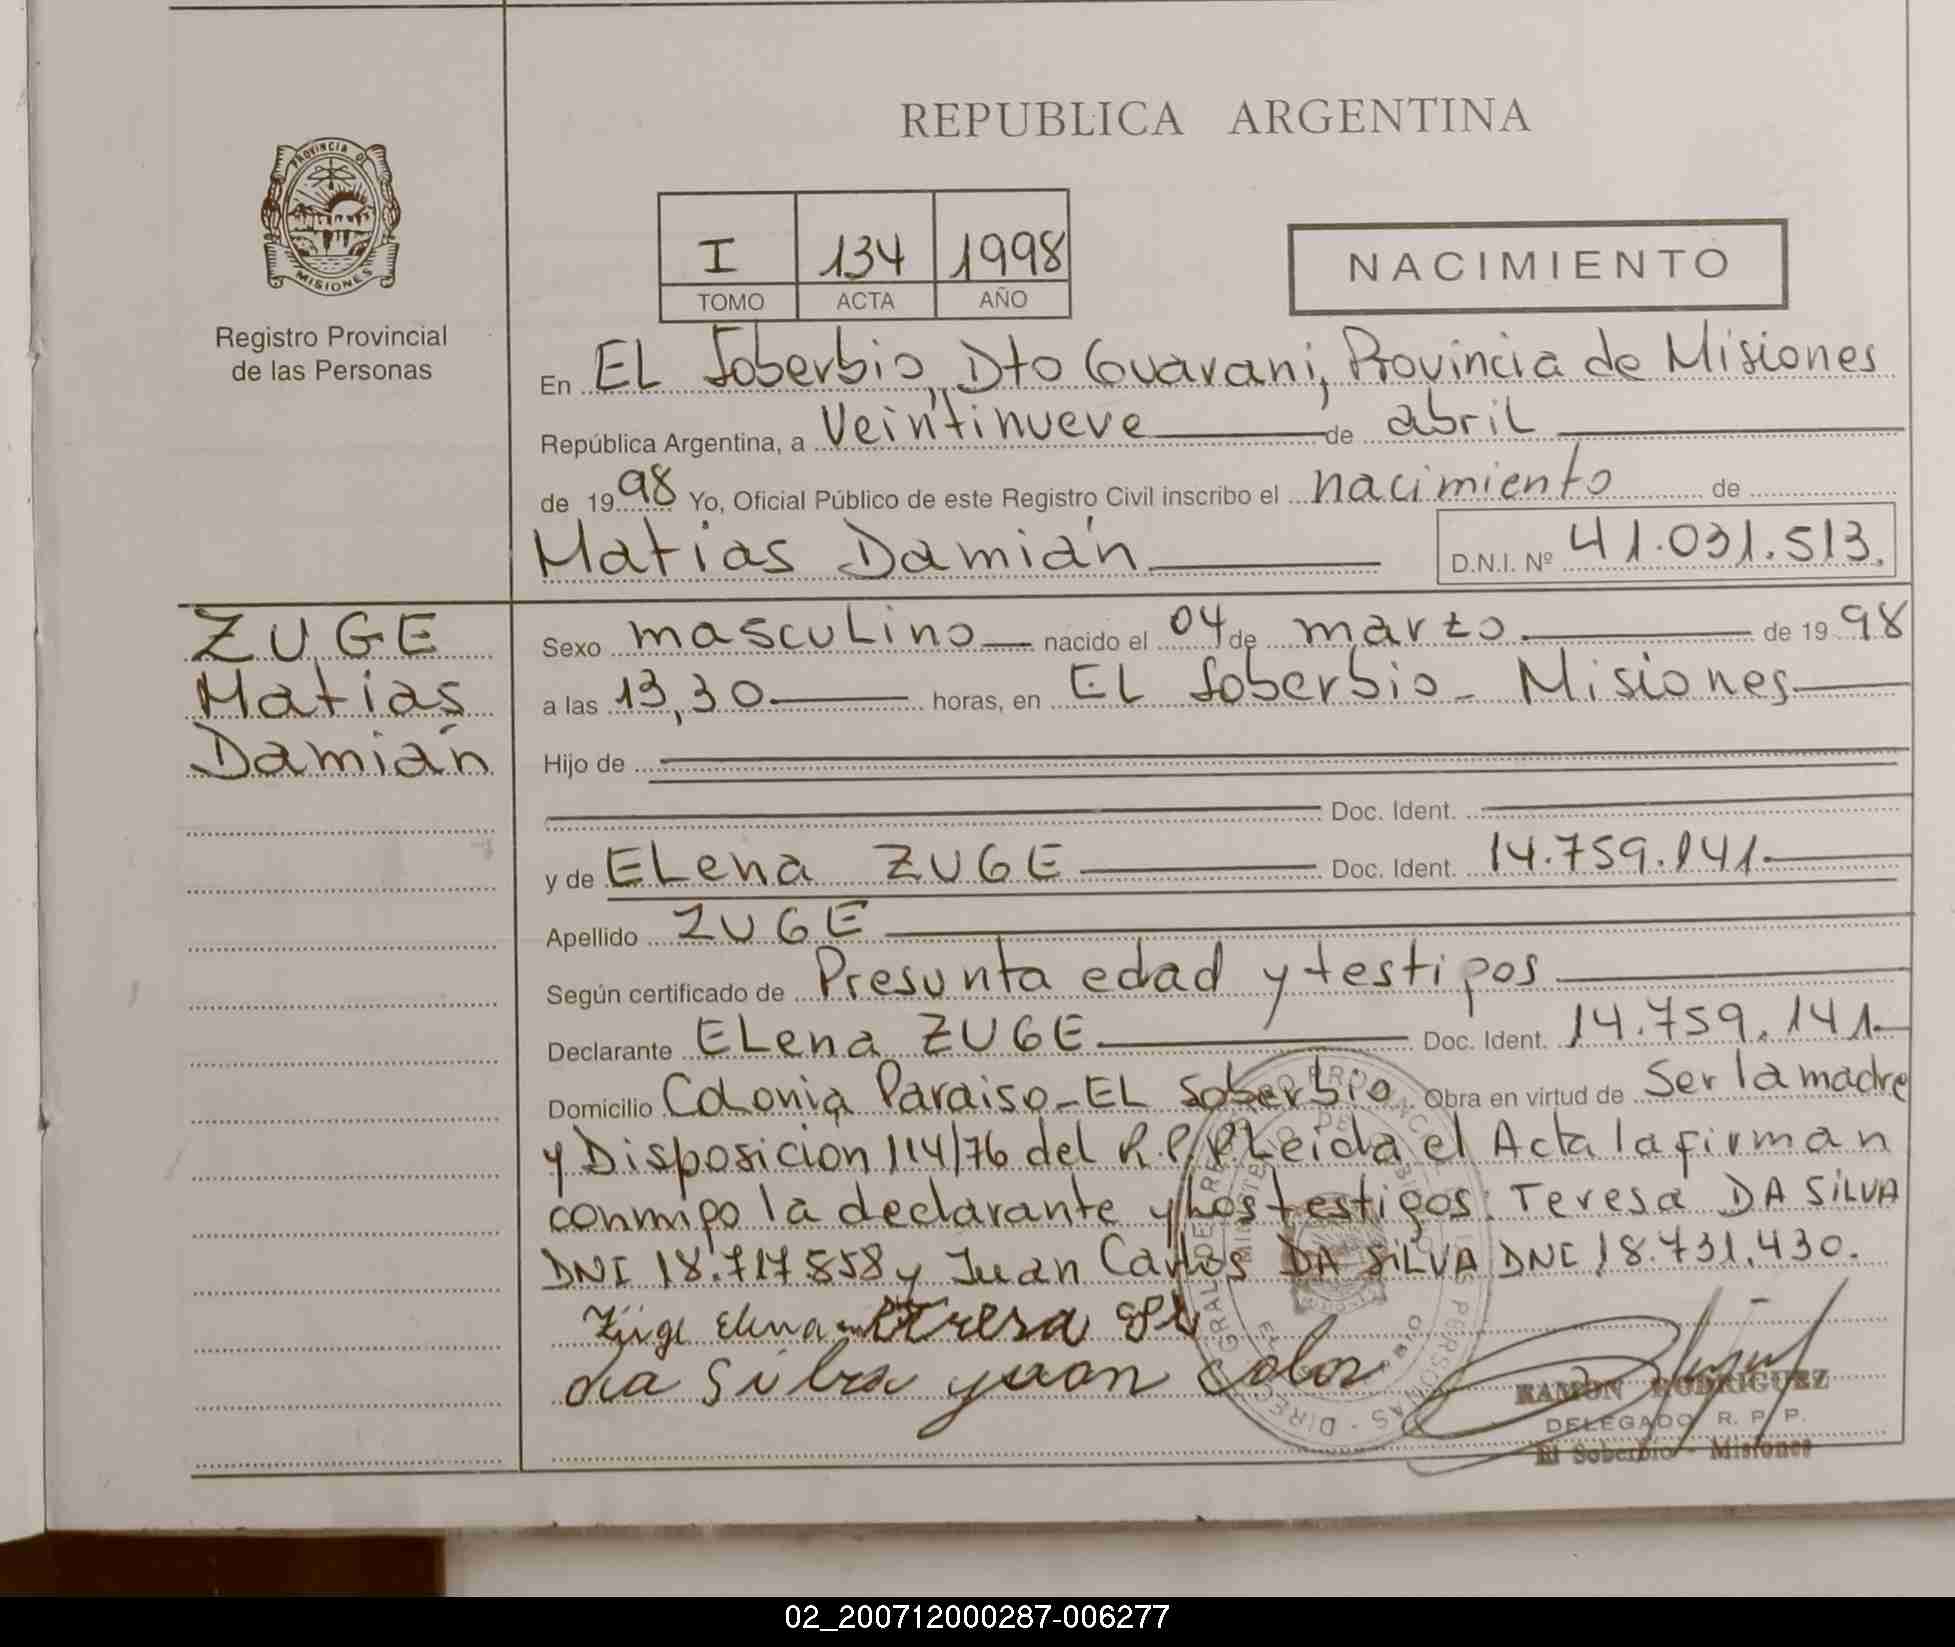 REPUBLICA ARGENTINA
PROVINCIA DE
MISIONES
Registro Provincial
de las Personas
I 134 1998
TOMO ACTA AÑO
NACIMIENTO
En EL Soberbio, Dto Guarani, Provincia de Misiones
República Argentina, a Veintinueve de abril
de 1998 Yo, Oficial Público de este Registro Civil inscribo el nacimiento de
Matias Damián
D.N.I. Nº 41.031.513.
ZUGE
Matias
Damián
Sexo masculino nacido el 04 de marzo de 1998
a las 13,30 horas, en EL Soberbio - Misiones
Hijo de
Doc. Ident.
y de ELena ZUGE Doc. Ident. 14.759.141.
Apellido ZUGE
Según certificado de Presunta edad y testigos
Declarante ELena ZUGE Doc. Ident. 14.759.141.
Domicilio Colonia Paraiso - EL Soberbio Obra en virtud de Ser la madre
y Disposicion 114/76 del R.P.P. Leida el Acta la firman
conmigo la declarante y Los testigos: Teresa DA SILVA
DNI 18.717.558 y Juan Carlos DA SILVA DNI 18.731.430.
Züge Elena
da Silva
RAMON RODRIGUEZ
DELEGADO R. P. P.
El Soberbio - Misiones
02_200712000287-006277